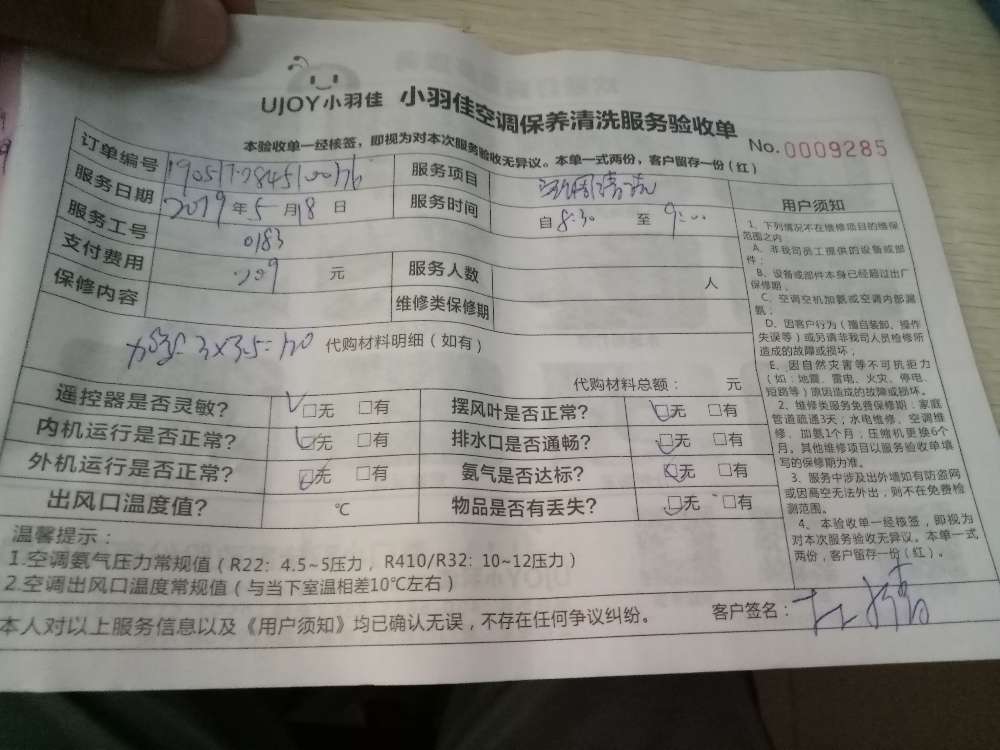 UJOY小羽佳 小羽佳空调保养清洗服务验收单
本验收单一经核签，即视为对本次服务验收无异议。本单一式两份，客户留存一份（红）
No.0009285
订单编号 服务项目
服务日期 2019年5月18日 服务时间 自8:30 至9:00
服务工号 0183
支付费用 元 服务人数 人
保修内容 维修类保修期
代购材料明细（如有）
代购材料总额： 元
遥控器是否灵敏? □无 □有 摆风叶是否正常? □无 □有
内机运行是否正常? □无 □有 排水口是否通畅? □无 □有
外机运行是否正常? □无 □有 氨气是否达标? □无 □有
出风口温度值? ℃ 物品是否有丢失? □无 □有
温馨提示：
1.空调氨气压力常规值（R22：4.5~5压力，R410/R32：10~12压力）
2.空调出风口温度常规值（与当下室温相差10℃左右）
本人对以上服务信息以及《用户须知》均已确认无误，不存在任何争议纠纷。 客户签名：
用户须知
1、下列情况不在维修项目的维保
范围之内
A、非我司员工提供的设备或部
件；
B、设备或部件本身已经超过出厂
保修期；
C、空调空机加氨或空调内部漏
氨；
D、因客户行为（擅自装卸、操作
失误等）或另请非我司人员检修所
造成的故障或损坏；
E、因自然灾害等不可抗拒力
（如：地震、雷电、火灾、停电、
短路等）原因造成的故障或损坏。
2、维修类服务免费保修期：家庭
管道疏通3天，水电维修、空调维
修、加氨1个月；压缩机更换6个
月。其他维修项目以服务验收单填
写的保修期为准。
3、服务中涉及出外墙如有防盗网
或因高空无法外出，则不在免费检
测范围。
4、本验收单一经核签，即视为
对本次服务验收无异议。本单一式
两份，客户留存一份（红）。